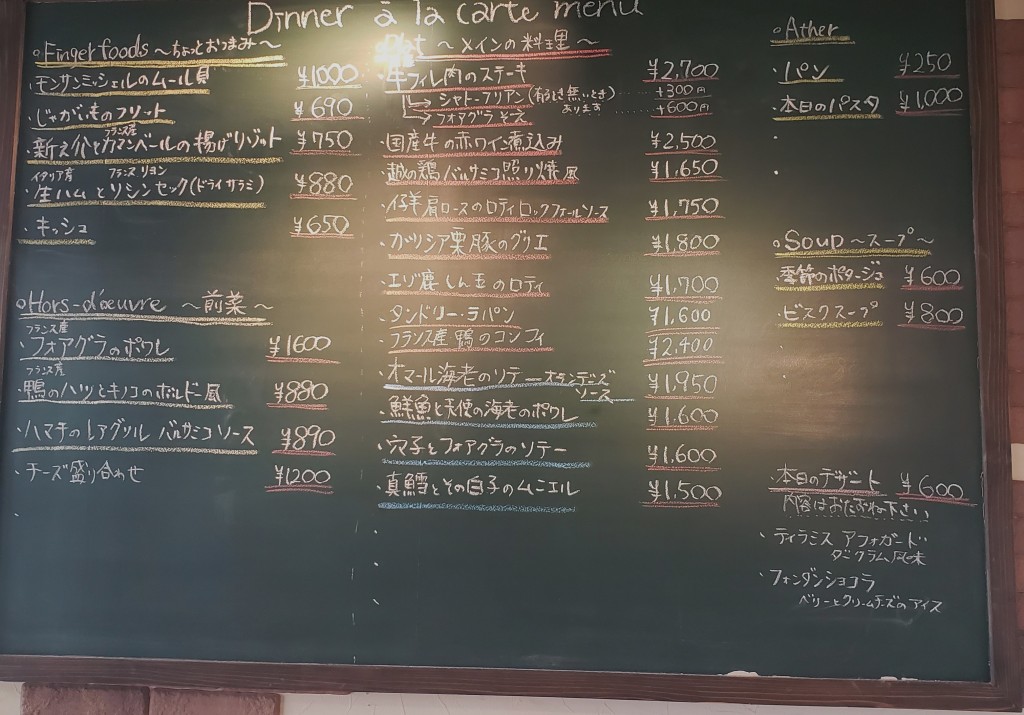 Dinner à la carte menu
Finger foods ～ちょっとおつまみ～
・モンサンミッシェルのムール貝 ¥1000
・じゃがいものフリット ¥690
フランス産
・新之介とカマンベールの揚げリゾット ¥750
イタリア産 フランス リヨン
・生ハムとソシソンセック(ドライサラミ) ¥880
・キッシュ ¥650
Hors-d'oeuvre ～前菜～
フランス産
・フォアグラのポワレ ¥1600
フランス産
・鴨のハツとキノコのボルドー風 ¥880
・ハマチのレアグリル バルサミコソース ¥890
・チーズ盛り合わせ ¥1200
～メインの料理～
・牛フィレ肉のステーキ ¥2,700
→シャトーブリアン(有るとき無いときあります) +300円
→フォアグラそえ +600円
・国産牛の赤ワイン煮込み ¥2,500
・越の鶏バルサミコ照り焼風 ¥1,650
・仔羊肩ロースのロティ ロックフォールソース ¥1,750
・ガリシア栗豚のグリエ ¥1,800
・エゾ鹿しん玉のロティ ¥1,700
・タンドリーラパン ¥1,600
・フランス産 鴨のコンフィ ¥2,400
・オマール海老のソテーオランデーズソース ¥1,950
・鮮魚と天使の海老のポワレ ¥1,600
・穴子とフォアグラのソテー ¥1,600
・真鱈とその白子のムニエル ¥1,500
Ather
・パン ¥250
・本日のパスタ ¥1,000
Soup ～スープ～
・季節のポタージュ ¥600
・ビスクスープ ¥800
・本日のデザート ¥600
内容はおたずね下さい
・ティラミス アフォガード
ダージクラム風味
・フォンダンショコラ
ベリーとクリームチーズのアイス